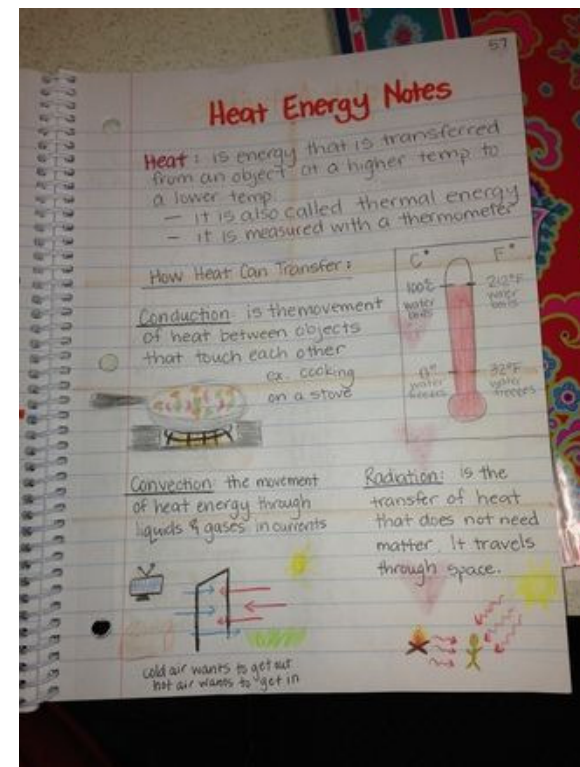 57
Heat Energy Notes
Heat: is energy that is transferred
from an object at a higher temp to
a lower temp.
- it is also called thermal energy
- it is measured with a thermometer
How Heat Can Transfer:
Conduction: is the movement
of heat between objects
that touch each other
ex. cooking
on a stove
C°
F°
100°C
water
boils
212°F
water
boils
0°
water
freezes
32°F
water
freezes
Convection: the movement
of heat energy through
liquids & gases in currents
cold air wants to get out
hot air wants to get in
Radiation: is the
transfer of heat
that does not need
matter. It travels
through space.